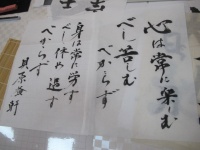 心は常に楽しむ
べし苦しむ
べからず
身は常に労す
べし休め過す
べからず
貝原益軒